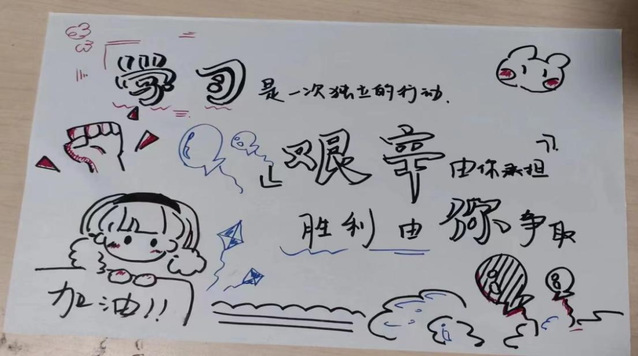 学习是一次独立的行动.
艰辛由你承担
胜利由你争取
加油!!